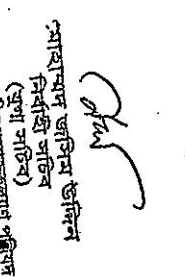 মোহাম্মদ জসিম উদ্দিন
নির্বাহী সচিব
(যুগ্ম সচিব)
পরিষদ